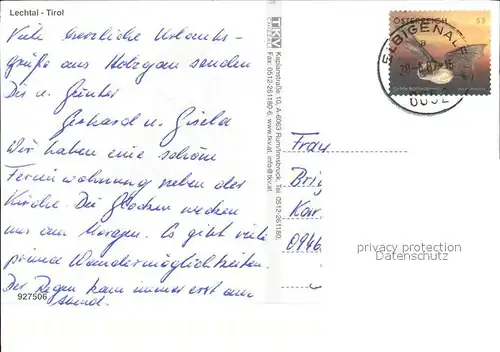 Lechtal - Tirol
Viele herzliche Urlaubs-
grüße aus Holzgau senden
Dir u. Günter
Gerhard u. Gisela
Wir haben eine schöne
Ferienwohnung neben der
Kirche. Die Glocken wecken
uns am Morgen. Es gibt viele
prima Wandermöglichkeiten.
Der Regen kam immer erst am
Abend.
927506
TKV
Kaplanstraße 10, A-6063 Rum/Innsbruck, Tel. 0512-261180,
Fax. 0512-261180-6, www.tkv.at, info@tkv.at
ÖSTERREICH 55
ELBIGENALP
a
6652
Frau
Brig
Kar
0946
privacy protection
Datenschutz